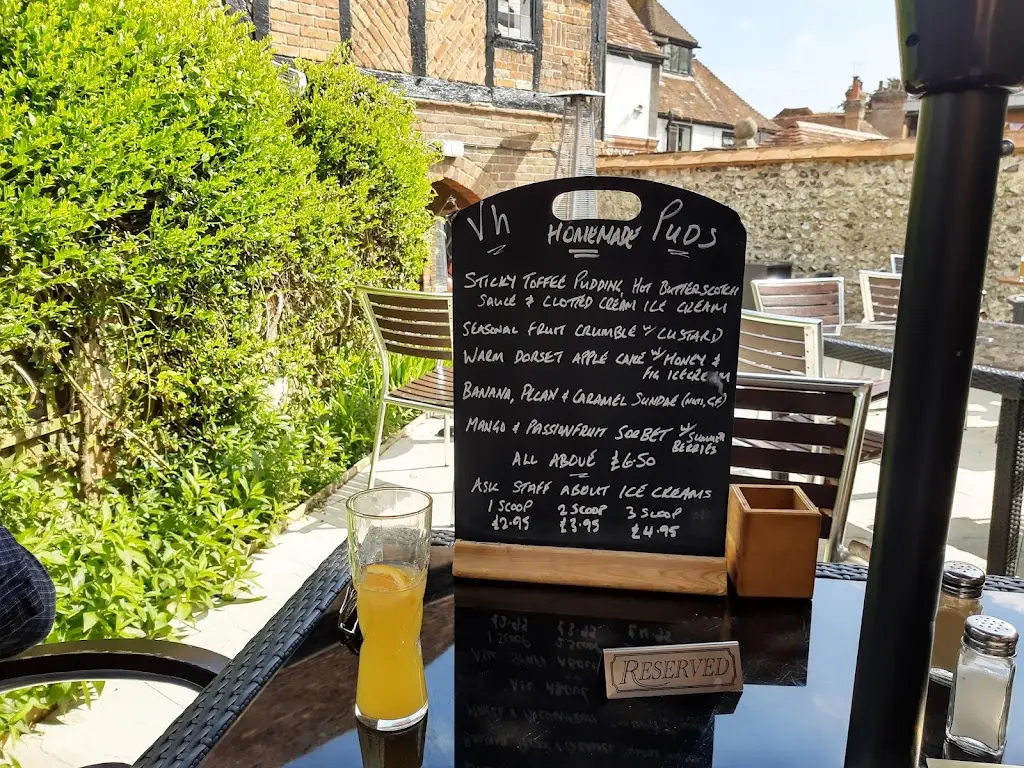 Vh HOMEMADE PUDS
STICKY TOFFEE PUDDING, HOT BUTTERSCOTCH
SAUCE & CLOTTED CREAM ICE CREAM
SEASONAL FRUIT CRUMBLE w/ CUSTARD
WARM DORSET APPLE CAKE w/ HONEY &
FIG ICECREAM
BANANA, PECAN & CARAMEL SUNDAE (NUTS, GF)
MANGO & PASSIONFRUIT SORBET w/ SUMMER
BERRIES
ALL ABOVE £6.50
ASK STAFF ABOUT ICE CREAMS
1 SCOOP 2 SCOOP 3 SCOOP
£2.95 £3.95 £4.95
RESERVED